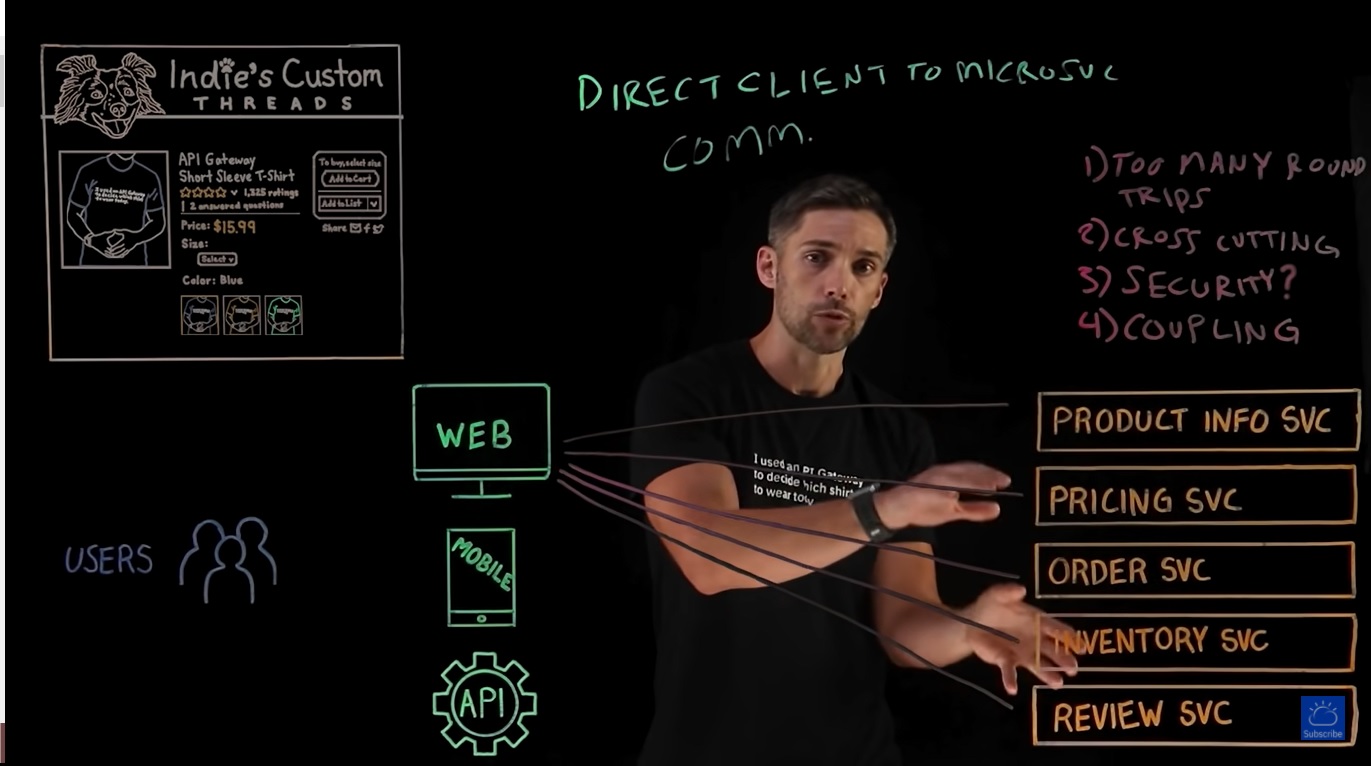 Indie's Custom
THREADS
API Gateway
Short Sleeve T-Shirt
1,325 ratings
2 answered questions
Price: $15.99
Size:
Select
Color: Blue
To buy, select size
Add to Cart
Add to List
Share
DIRECT CLIENT TO MICROSVC
COMM.
1) TOO MANY ROUND
TRIPS
2) CROSS CUTTING
3) SECURITY?
4) COUPLING
WEB
MOBILE
API
USERS
I used an PI Gateway
to decide hich shirt
to wear
PRODUCT INFO SVC
PRICING SVC
ORDER SVC
INVENTORY SVC
REVIEW SVC
Subscribe